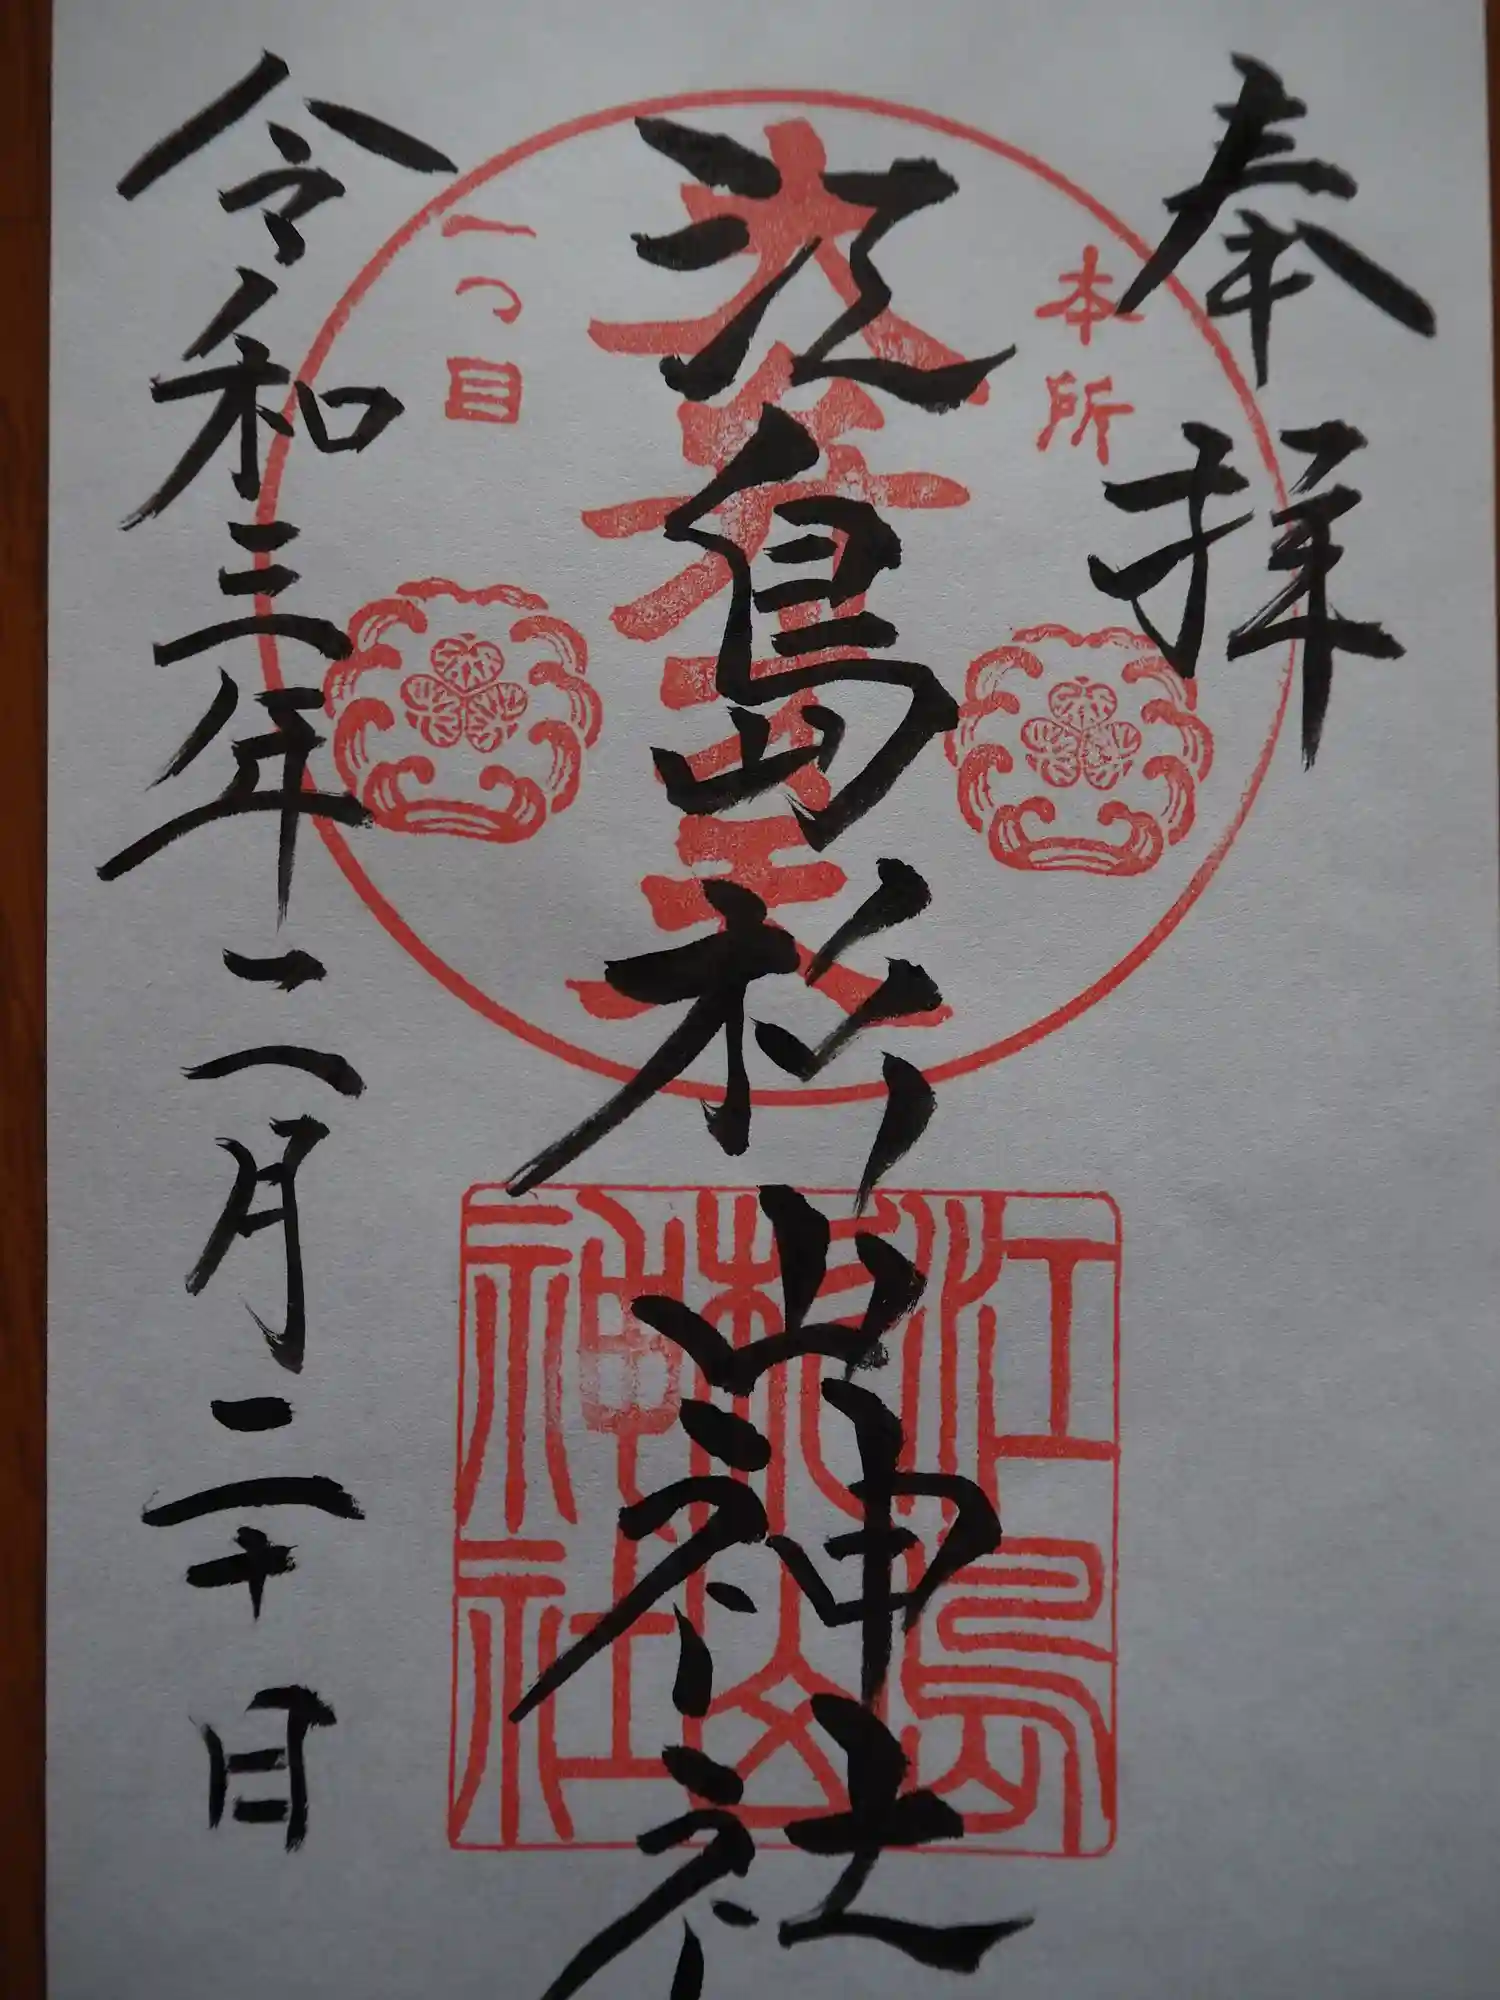 奉拝
本所
一つ目
大弁才天
江島杉山神社
江島杉山神社
令和三年二月二十日